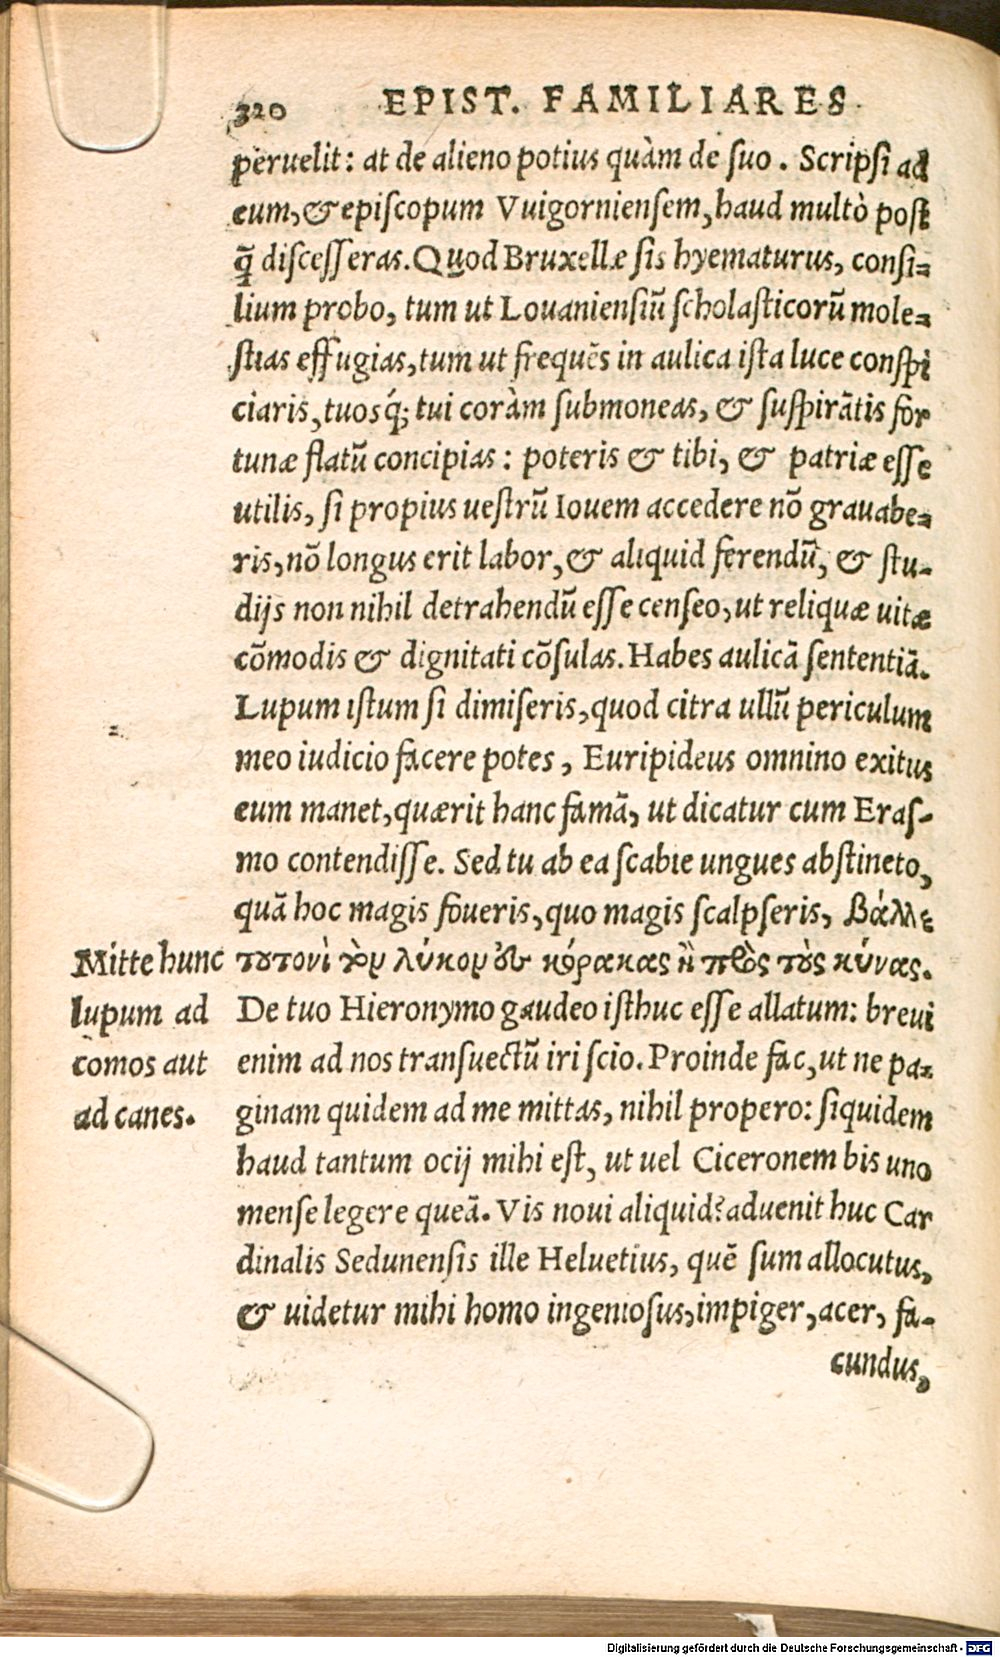 320 EPIST. FAMILIARES
peruelit: at de alieno potius quàm de suo. Scripsi ad
eum, & episcopum Vuigorniensem, haud multò post
q̃ discesseras. Quod Bruxellæ sis hyematurus, consi-
lium probo, tum ut Louaniensiũ scholasticorũ mole-
stias effugias, tum ut frequẽs in aulica ista luce conspi
ciaris, tuosq́; tui coràm submoneas, & suspirãtis for
tunæ flatũ concipias: poteris & tibi, & patriæ esse
utilis, si propius uestrũ Iouem accedere nõ grauabe-
ris, nõ longus erit labor, & aliquid ferendũ, & stu-
dijs non nihil detrahendũ esse censeo, ut reliquæ uitæ
cõmodis & dignitati cõsulas. Habes aulicã sententiã.
Lupum istum si dimiseris, quod citra ullũ periculum
meo iudicio facere potes, Euripideus omnino exitus
eum manet, quærit hanc famã, ut dicatur cum Eras-
mo contendisse. Sed tu ab ea scabie ungues abstineto,
quã hoc magis foueris, quo magis scalpseris, βάλλε
τουτονὶ τὸν λύκον ἐς κόρακας ἢ πρὸς τοὺς κύνας.
Mitte hunc
lupum ad
comos aut
ad canes.
De tuo Hieronymo gaudeo isthuc esse allatum: breui
enim ad nos transuectũ iri scio. Proinde fac, ut ne pa-
ginam quidem ad me mittas, nihil propero: siquidem
haud tantum ocij mihi est, ut uel Ciceronem bis uno
mense legere queã. Vis noui aliquid? aduenit huc Car
dinalis Sedunensis ille Heluetius, quẽ sum allocutus,
& uidetur mihi homo ingeniosus, impiger, acer, fa-
cundus,
Digitalisierung gefördert durch die Deutsche Forschungsgemeinschaft - DFG